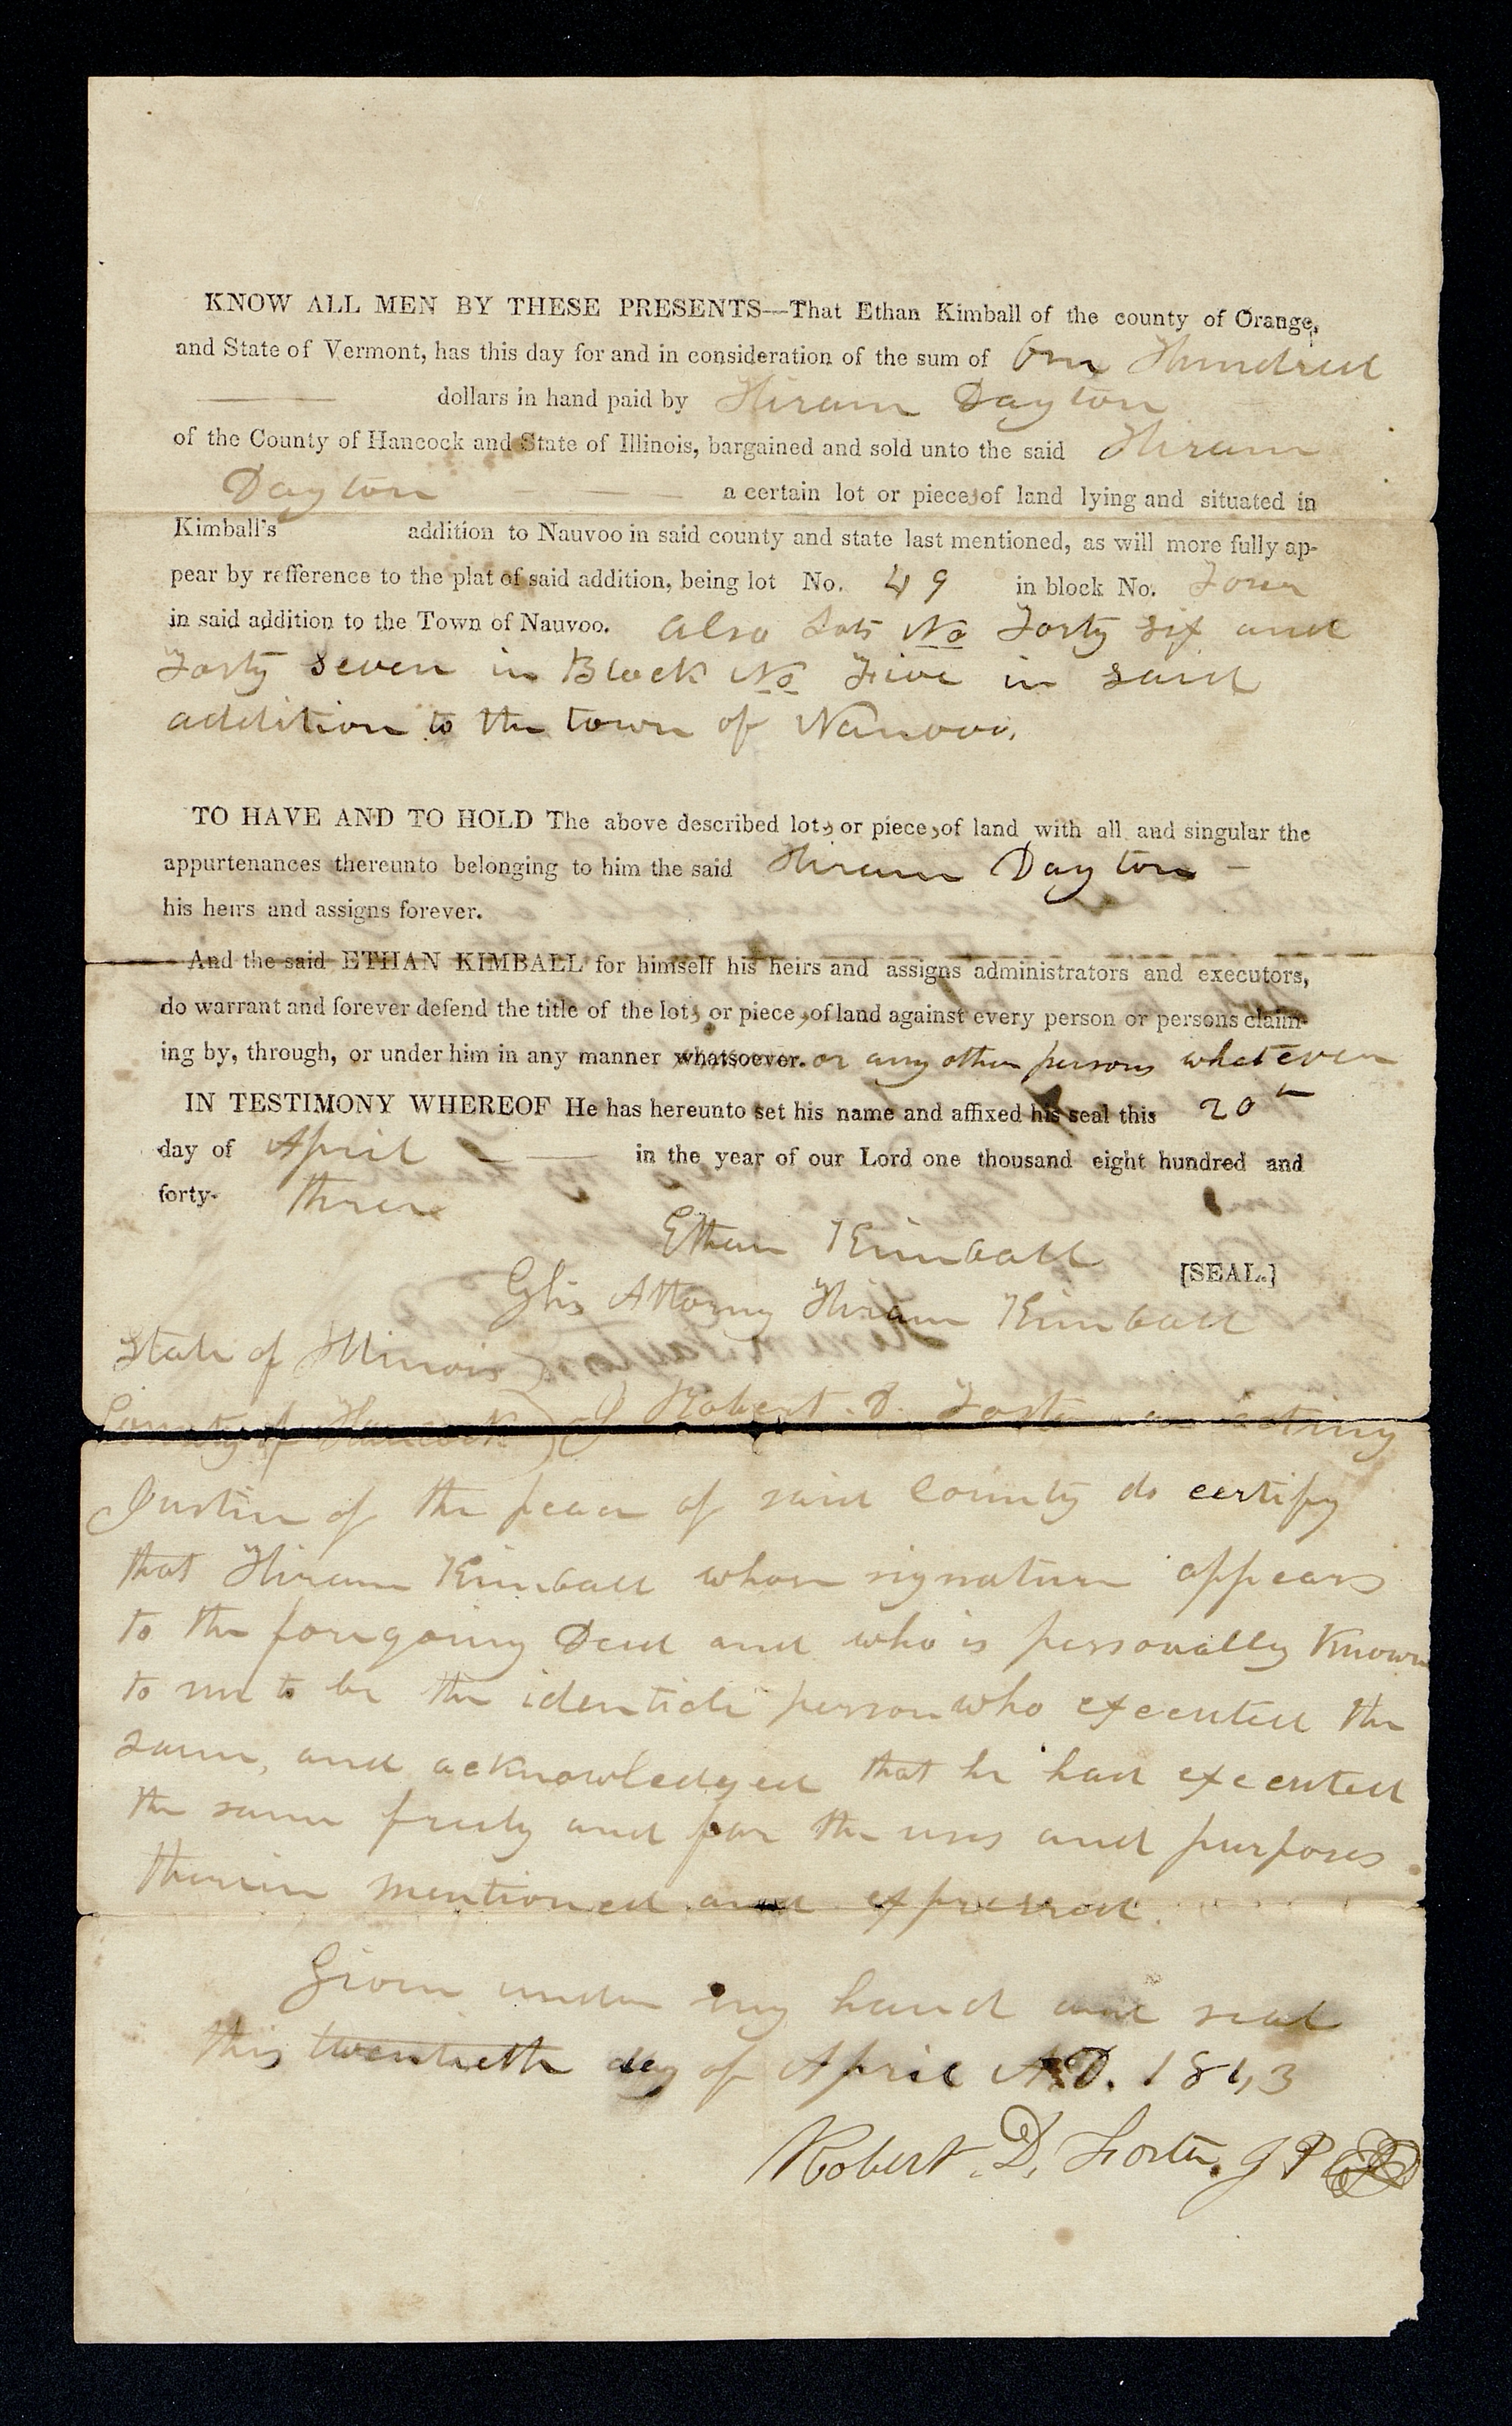 KNOW ALL MEN BY THESE PRESENTS—That Ethan Kimball of the county of Orange,
and State of Vermont, has this day for and in consideration of the sum of One Hundred
dollars in hand paid by Hiram Dayton
of the County of Hancock and State of Illinois, bargained and sold unto the said Hiram
Dayton a certain lot or pieces of land lying and situated in
Kimball's addition to Nauvoo in said county and state last mentioned, as will more fully ap-
pear by refference to the plat of said addition, being lot No. 49 in block No. Four
in said addition to the Town of Nauvoo. Also Lots No Forty six and
Forty seven in Block No Five in said
addition to the town of Nauvoo.
TO HAVE AND TO HOLD The above described lots or pieces of land with all and singular the
appurtenances thereunto belonging to him the said Hiram Dayton -
his heirs and assigns forever.
And the said ETHAN KIMBALL for himself his heirs and assigns administrators and executors,
do warrant and forever defend the title of the lots or pieces of land against every person or persons claim-
ing by, through, or under him in any manner whatsoever. or any other persons whatever
IN TESTIMONY WHEREOF He has hereunto set his name and affixed his seal this 20th
day of April in the year of our Lord one thousand eight hundred and
forty- three
Ethan Kimball
[SEAL.]
By his Attorny Hiram Kimball
State of Illinois )
County of Hancock ) I Robert. D. Foster an acting
Justice of the peace of said County do certify
that Hiram Kimball whose signature appears
to the foregoing Deed and who is personally Known
to me to be the identicle person who executed the
same, and acknowledged that he had executed
the same freely and for the uses and purposes
therein mentioned and expressed.
Given under my hand and seal
this twentieth day of April A.D. 1843
Robert. D. Foster. J P